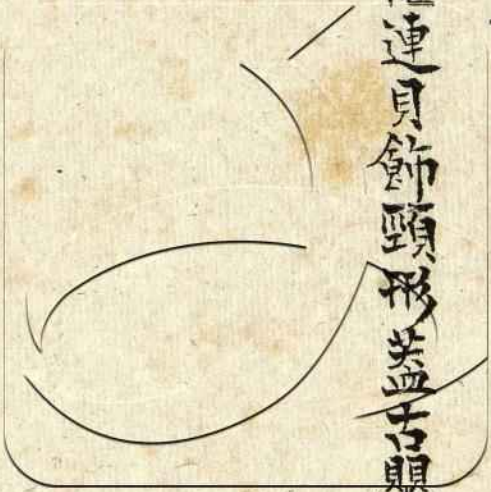 連貝飾頸形蓋古賏